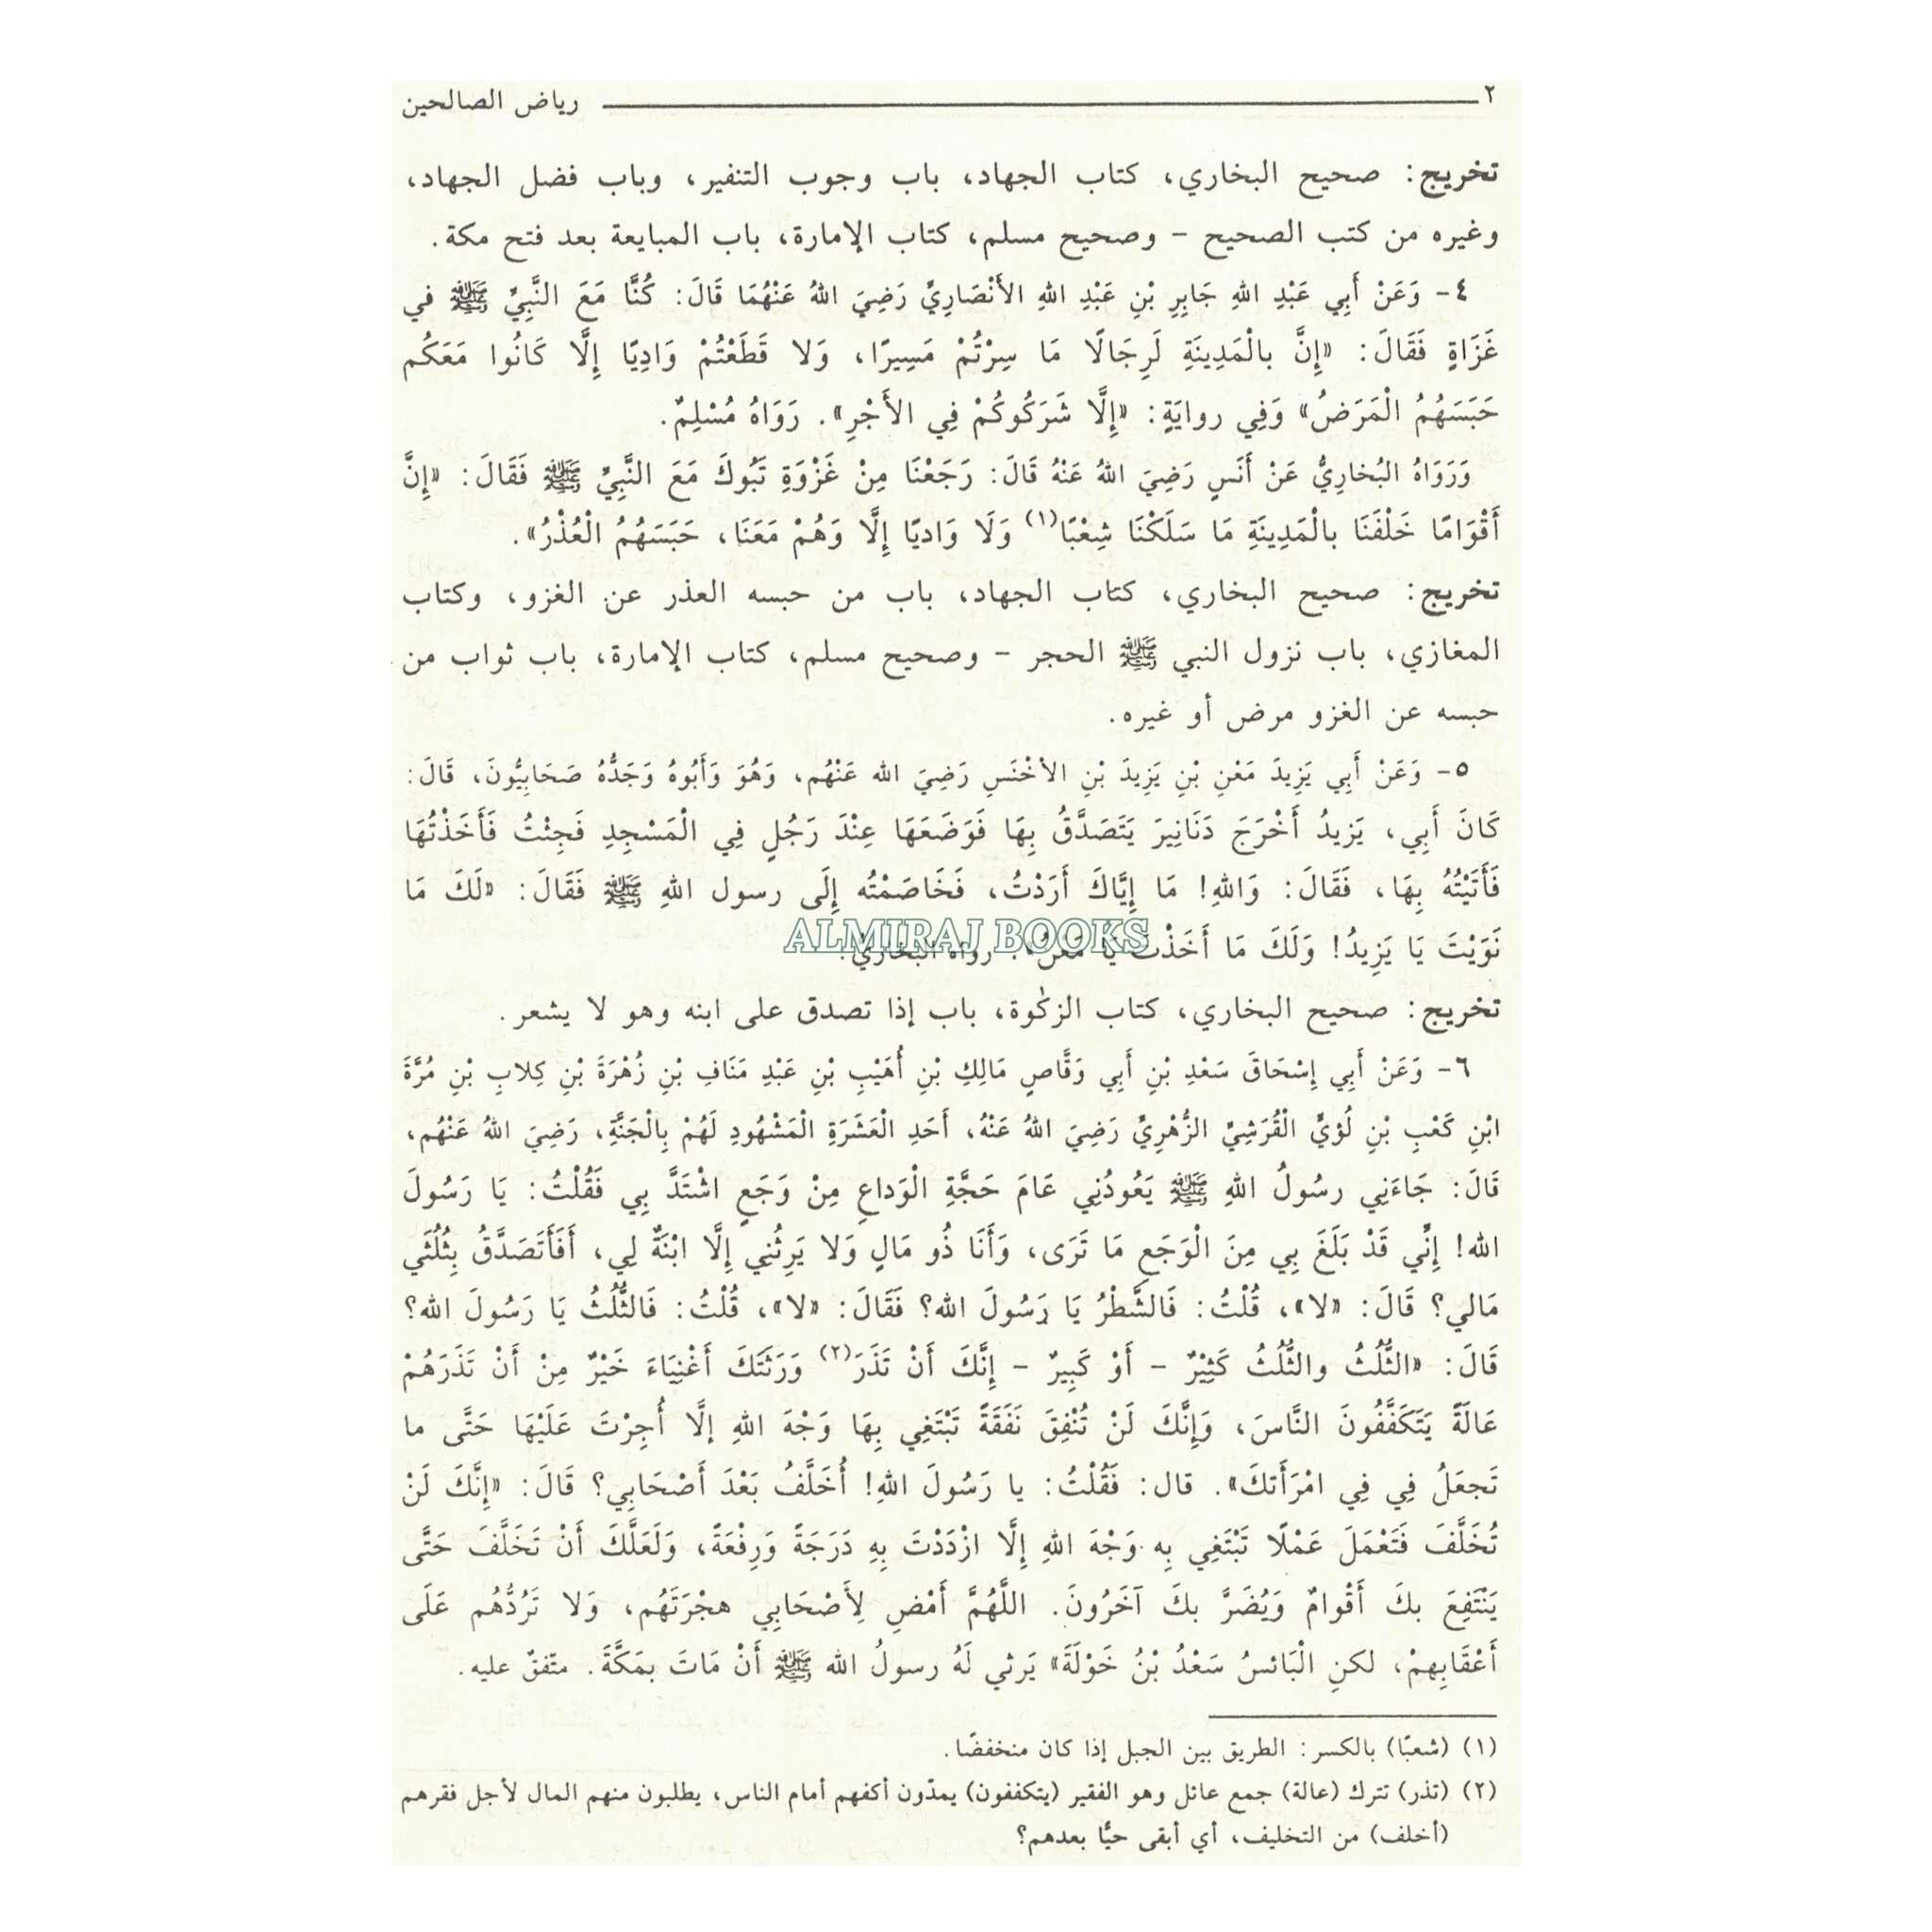 ٢ رياض الصالحين
تخريج: صحيح البخاري، كتاب الجهاد، باب وجوب التنفير، وباب فضل الجهاد،
وغيره من كتب الصحيح – وصحيح مسلم، كتاب الإمارة، باب المبايعة بعد فتح مكة.
٤- وَعَنْ أَبِي عَبْدِ اللهِ جَابِرِ بْنِ عَبْدِ اللهِ الأَنْصَارِيِّ رَضِيَ اللهُ عَنْهُمَا قَالَ: كُنَّا مَعَ النَّبِيِّ ﷺ في
غَزَاةٍ فَقَالَ: «إِنَّ بالْمَدِينَةِ لَرِجَالًا مَا سِرْتُمْ مَسِيرًا، وَلا قَطَعْتُمْ وَادِيًا إِلَّا كَانُوا مَعَكُم
حَبَسَهُمُ الْمَرَضُ» وَفِي روايَةٍ: «إِلَّا شَرَكُوكُمْ فِي الأَجْرِ». رَوَاهُ مُسْلِمٌ.
وَرَوَاهُ البُخارِيُّ عَنْ أَنَسٍ رَضِيَ اللهُ عَنْهُ قَالَ: رَجَعْنَا مِنْ غَزْوَةِ تَبُوكَ مَعَ النَّبِيِّ ﷺ فَقَالَ: «إِنَّ
أَقْوَامًا خَلْفَنَا بالْمَدِينَةِ مَا سَلَكْنَا شِعْبًا(١) وَلَا وَاديًا إِلَّا وَهُمْ مَعَنَا، حَبَسَهُمُ الْعُذْرُ».
تخريج: صحيح البخاري، كتاب الجهاد، باب من حبسه العذر عن الغزو، وكتاب
المغازي، باب نزول النبي ﷺ الحجر – وصحيح مسلم، كتاب الإمارة، باب ثواب من
حبسه عن الغزو مرض أو غيره.
٥- وَعَنْ أَبِي يَزِيدَ مَعْنِ بْنِ يَزِيدَ بْنِ الأخْنَسِ رَضِيَ الله عَنْهُم، وَهُوَ وَأَبُوهُ وَجَدُّهُ صَحَابِيُّونَ، قَالَ:
كَانَ أَبِي، يَزِيدُ أَخْرَجَ دَنَانِيرَ يَتَصَدَّقُ بِهَا فَوَضَعَهَا عِنْدَ رَجُلٍ فِي الْمَسْجِدِ فَجِئْتُ فَأَخَذْتُهَا
فَأَتَيْتُهُ بِهَا، فَقَالَ: وَاللهِ! مَا إِيَّاكَ أَرَدْتُ، فَخَاصَمْتُه إِلَى رسول اللهِ ﷺ فَقَالَ: «لَكَ مَا
نَوَيْتَ يَا يَزِيدُ! وَلَكَ مَا أَخَذْتَ يَا مَعْنُ». رواه البخاريُّ.
ALMIRAJ BOOKS
تخريج: صحيح البخاري، كتاب الزكٰوة، باب إذا تصدق على ابنه وهو لا يشعر.
٦- وَعَنْ أَبِي إِسْحَاقَ سَعْدِ بْنِ أَبِي وَقَّاصٍ مَالِكِ بْنِ أُهَيْبِ بْنِ عَبْدِ مَنَافِ بْنِ زُهْرَةَ بْنِ كِلابِ بْنِ مُرَّةَ
ابْنِ كَعْبِ بْنِ لُؤيٍّ الْقُرَشِيِّ الزُّهْرِيِّ رَضِيَ اللهُ عَنْهُ، أَحَدِ الْعَشَرَةِ الْمَشْهُودِ لَهُمْ بِالْجَنَّةِ، رَضِيَ اللهُ عَنْهُم،
قَالَ: جَاءَنِي رسُولُ اللهِ ﷺ يَعُودُنِي عَامَ حَجَّةِ الْوَداعِ مِنْ وَجَعٍ اشْتَدَّ بِي فَقُلْتُ: يَا رَسُولَ
الله! إِنِّي قَدْ بَلَغَ بِي مِنَ الْوَجَعِ مَا تَرَى، وَأَنَا ذُو مَالٍ وَلا يَرِثُنِي إِلَّا ابْنَةٌ لِي، أَفَأَتَصَدَّقُ بِثُلُثَي
مَالي؟ قَالَ: «لا»، قُلْتُ: فَالشَّطْرُ يَا رَسُولَ الله؟ فَقَالَ: «لا»، قُلْتُ: فَالثُّلُثُ يَا رَسُولَ الله؟
قَالَ: «الثُّلُثُ والثُّلُثُ كَثِيْرٌ – أَوْ كَبِيرٌ – إِنَّكَ أَنْ تَذَرَ(٢) وَرَثَتَكَ أَغْنِيَاءَ خَيْرٌ مِنْ أَنْ تَذَرَهُمْ
عَالَةً يَتَكَفَّفُونَ النَّاسَ، وَإِنَّكَ لَنْ تُنْفِقَ نَفَقَةً تَبْتَغِي بِهَا وَجْهَ اللهِ إلَّا أُجِرْتَ عَلَيْهَا حَتَّى ما
تَجعَلُ فِي فِي امْرَأَتكَ». قال: فَقُلْتُ: يا رَسُولَ اللهِ! أُخَلَّفُ بَعْدَ أَصْحَابِي؟ قَالَ: «إِنَّكَ لَنْ
تُخَلَّفَ فَتَعْمَلَ عَمْلًا تَبْتَغِي بِه وَجْهَ اللهِ إِلَّا ازْدَدْتَ بِهِ دَرَجَةً وَرِفْعَةً، وَلَعَلَّكَ أَنْ تَخَلَّفَ حَتَّى
يَنْتَفِعَ بكَ أَقْوامٌ وَيُضَرَّ بكَ آخَرُونَ. اللَّهُمَّ أَمْضِ لِأَصْحَابِي هجْرَتَهُم، وَلا تَرُدُّهُم عَلَى
أَعْقَابِهِمْ، لكنِ الْبَائسُ سَعْدُ بْنُ خَوْلَةَ» يَرثي لَهُ رسولُ الله ﷺ أَنْ مَاتَ بمَكَّةَ. متّفقٌ عليه.
(١) (شعبًا) بالكسر: الطريق بين الجبل إذا كان منخفضًا.
(٢) (تذر) تترك (عالة) جمع عائل وهو الفقير (يتكففون) يمدّون أكفهم أمام الناس، يطلبون منهم المال لأجل فقرهم
(أخلف) من التخليف، أي أبقى حيًّا بعدهم؟